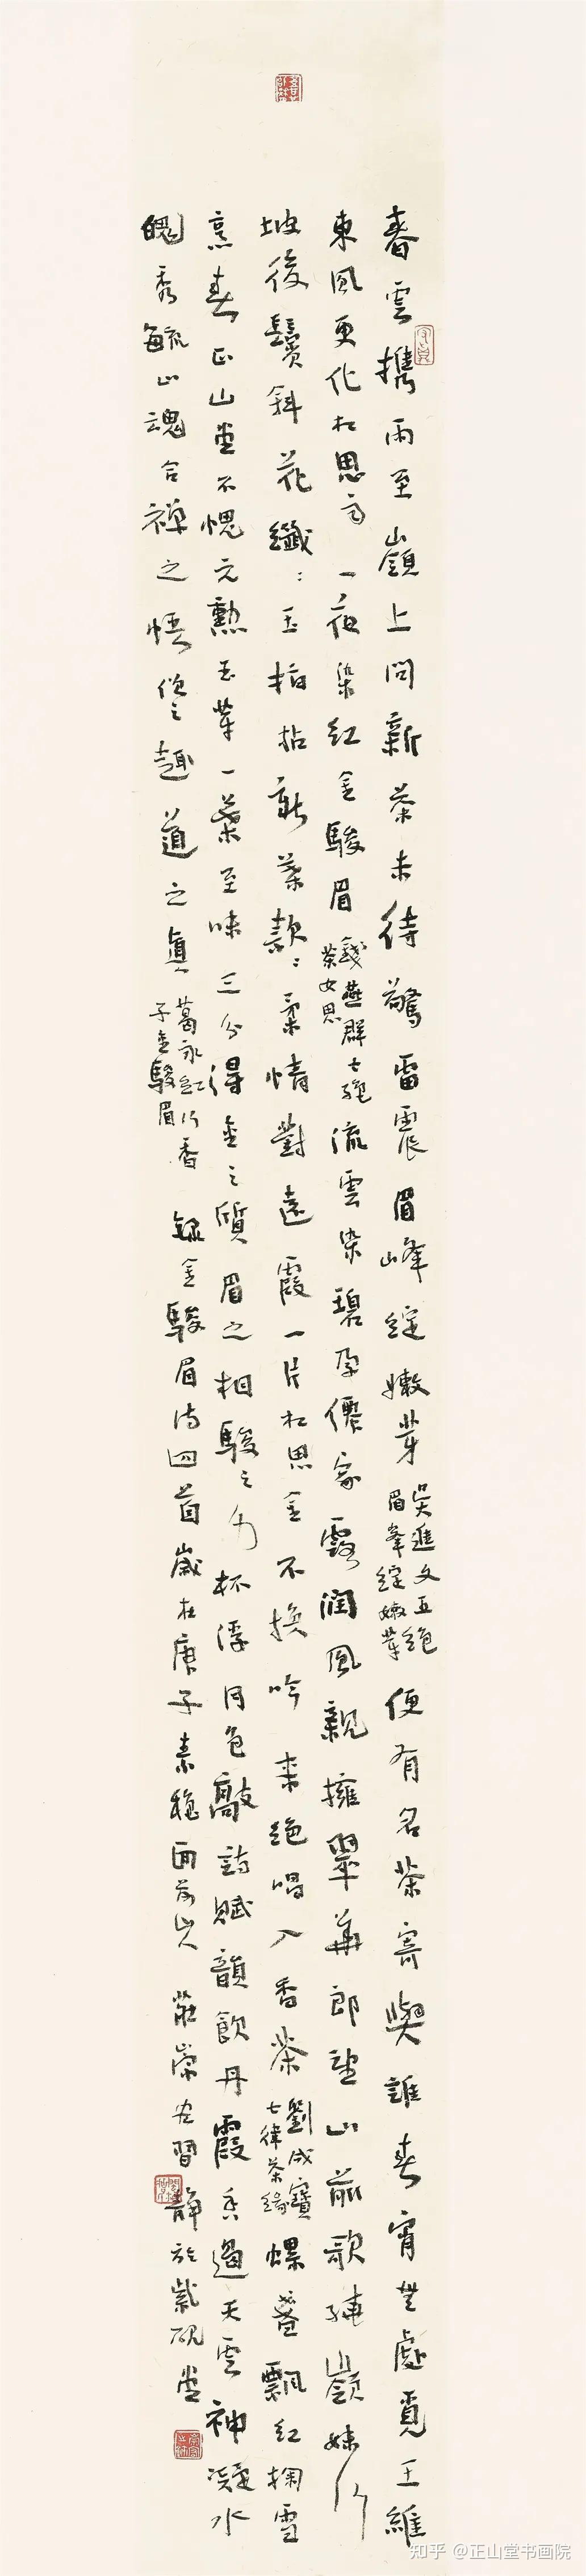 春雲攜雨至嶺上問新茶未待驚雷震眉峰綻嫩芽吳進文五絕眉峯綻嫩芽便有名茶寄與誰春宵無處覓王維
東風更化相思子一夜染紅金駿眉錢燕群七絕茶女思流雲染碧孕僊家露潤風親擁翠華郎望山前歌繞嶺妹行
坡後鬢斜花纖〻玉指拈新葉款〻柔情對遠霞一片相思金不換吟來絕唱入香茶劉成寶七律茶緣螺盞飄紅掬雪
烹春正山堂不愧元勳玉芽一葉至味三分得金之質眉之相駿之形杯浮月色敲詩賦韻飲丹霞香遏天雲神凝水
魄秀毓山魂合禪之悟儒之趣道之真葛永紅行香子金駿眉錄金駿眉詩四首歲在庚子素穐習靜於紫硯堂
知乎 @正山堂书画院